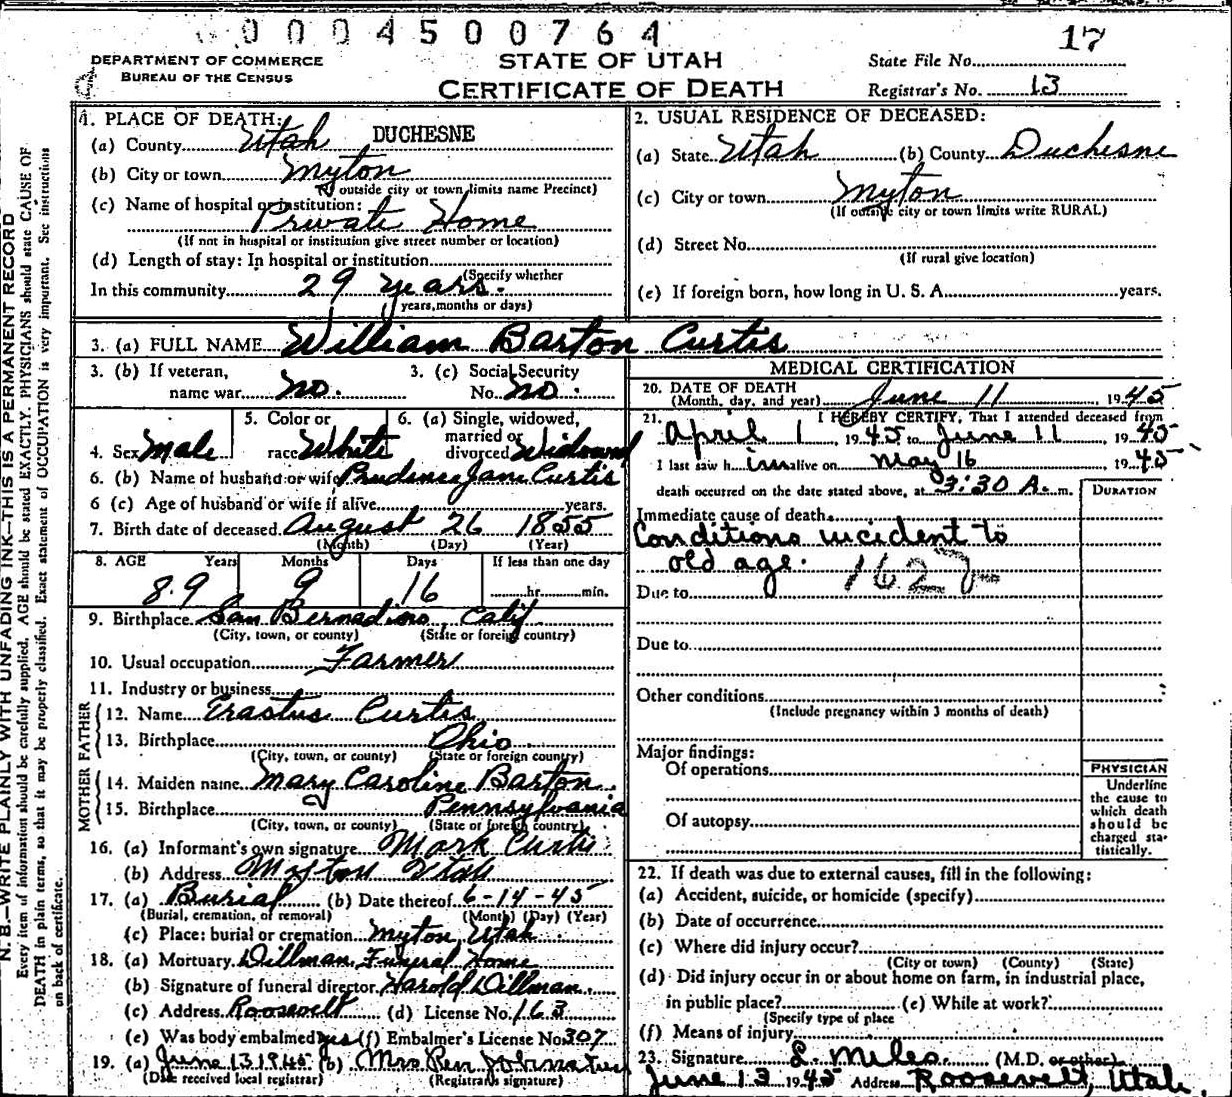 0004500764
17
DEPARTMENT OF COMMERCE
BUREAU OF THE CENSUS
STATE OF UTAH
CERTIFICATE OF DEATH
State File No.
Registrar's No. 13
1. PLACE OF DEATH:
(a) County Utah DUCHESNE
(b) City or town Myton
(If outside city or town limits name Precinct)
(c) Name of hospital or institution:
Private Home
(If not in hospital or institution give street number or location)
(d) Length of stay: In hospital or institution
(Specify whether
In this community 29 years.
years, months or days)
2. USUAL RESIDENCE OF DECEASED:
(a) State Utah (b) County Duchesne
(c) City or town Myton
(If outside city or town limits write RURAL)
(d) Street No.
(If rural give location)
(e) If foreign born, how long in U. S. A. years.
3. (a) FULL NAME William Barton Curtis
3. (b) If veteran,
name war no.
3. (c) Social Security
No. no.
4. Sex Male
5. Color or
race White
6. (a) Single, widowed,
married or
divorced Widowed
6. (b) Name of husband or wife Prudence Jane Curtis
6 (c) Age of husband or wife if alive years.
7. Birth date of deceased August 26 1855
(Month) (Day) (Year)
8. AGE Years Months Days If less than one day
89 9 16 hr. min.
9. Birthplace San Bernadino Calif
(City, town, or county) (State or foreign country)
10. Usual occupation Farmer
11. Industry or business
FATHER
12. Name Erastus Curtis
13. Birthplace Ohio
(City, town, or county) (State or foreign country)
MOTHER
14. Maiden name Mary Caroline Barton
15. Birthplace Pennsylvania
(City, town, or county) (State or foreign country)
16. (a) Informant's own signature Mark Curtis
(b) Address Myton Utah
17. (a) Burial (b) Date thereof 6-14-45
(Burial, cremation, or removal) (Month) (Day) (Year)
(c) Place: burial or cremation Myton, Utah
18. (a) Mortuary Dillman Funeral Home
(b) Signature of funeral director Harold Dillman.
(c) Address Roosevelt (d) License No. 163
(e) Was body embalmed yes (f) Embalmer's License No. 307
19. (a) June 13 1945 (b) Mrs
(Date received local registrar) (Registrar's signature)
MEDICAL CERTIFICATION
20. DATE OF DEATH
(Month, day, and year) June 11, 1945
21. I HEREBY CERTIFY, That I attended deceased from
April 1, 1945 to June 11, 1945
I last saw him alive on May 16, 1945
death occurred on the date stated above, at 3:30 A. m.
DURATION
Immediate cause of death
Conditions incident to
old age. 162
Due to
Due to
Other conditions
(Include pregnancy within 3 months of death)
Major findings:
Of operations
Of autopsy
PHYSICIAN
Underline
the cause to
which death
should be
charged sta-
tistically.
22. If death was due to external causes, fill in the following:
(a) Accident, suicide, or homicide (specify)
(b) Date of occurrence
(c) Where did injury occur?
(City or town) (County) (State)
(d) Did injury occur in or about home on farm, in industrial place,
in public place? (e) While at work?
(Specify type of place
(f) Means of injury
23. Signature L. Miles (M.D. or other)
June 13 1945 Address Roosevelt, Utah.
N. B.—WRITE PLAINLY WITH UNFADING INK—THIS IS A PERMANENT RECORD
Every item of information should be carefully supplied. AGE should be stated EXACTLY. PHYSICIANS should state CAUSE OF
DEATH in plain terms, so that it may be properly classified. Exact statement of OCCUPATION is very important. See instructions
on back of certificate.